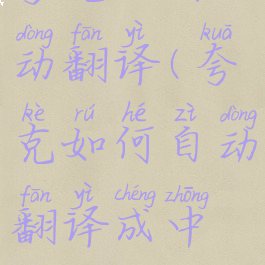 dòng fān yì kuā
动翻译(夸
kè rú hé zì dòng
克如何自动
fān yì chéng zhōng
翻译成中